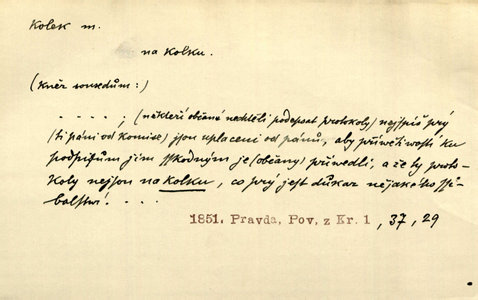 Kolek m.
na kolku.
(kněz sousedům:)
. . . . ; (někteří občané nechtěli podepsat protokoly) nejspíš prý
(ti páni od komise) jsou uplaceni od pánů, aby přívětivostí ku
podpisům jim škodným je (občany) přivedli, a že ty proto-
koly nejsou na kolku, co prý jest důkaz nějakého ši-
balství. . . .
1851. Pravda, Pov. z Kr. 1, 37, 29